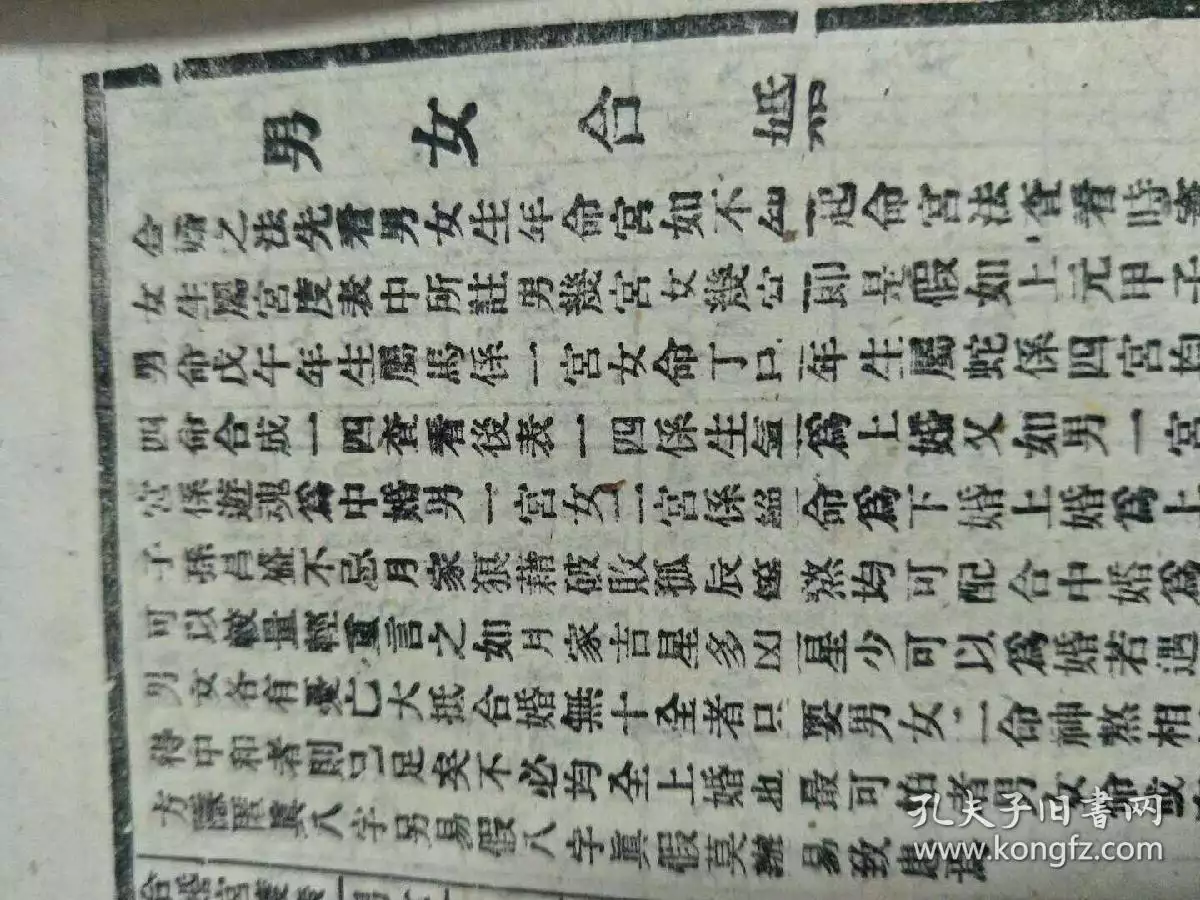 男女合婚
合婚之法先看男女生年命宮如不知起命宮法查看時憲
女生屬宮度表中所註男幾宮女幾宮即是假如上元甲子
男命戊午年生屬馬係一宮女命丁巳年生屬蛇係四宮均
四命合成一四查看後表一四係生氣爲上婚又如男一宮
宮係遊魂爲中婚男一宮女二宮係絕命爲下婚上婚爲上
子孫昌盛不忌月家狼藉破敗孤辰等煞均可配合中婚爲
可以較量輕重言之如月家吉星多凶星少可以爲婚若遇
男女各有憂亡大抵合婚無十全者只要男女二命神煞相
得中和者則已足矣不必均全上婚也最可怕者男女命或
方隱匿真八字另易假八字眞假莫辨易致
孔夫子旧书网
www.kongfz.com